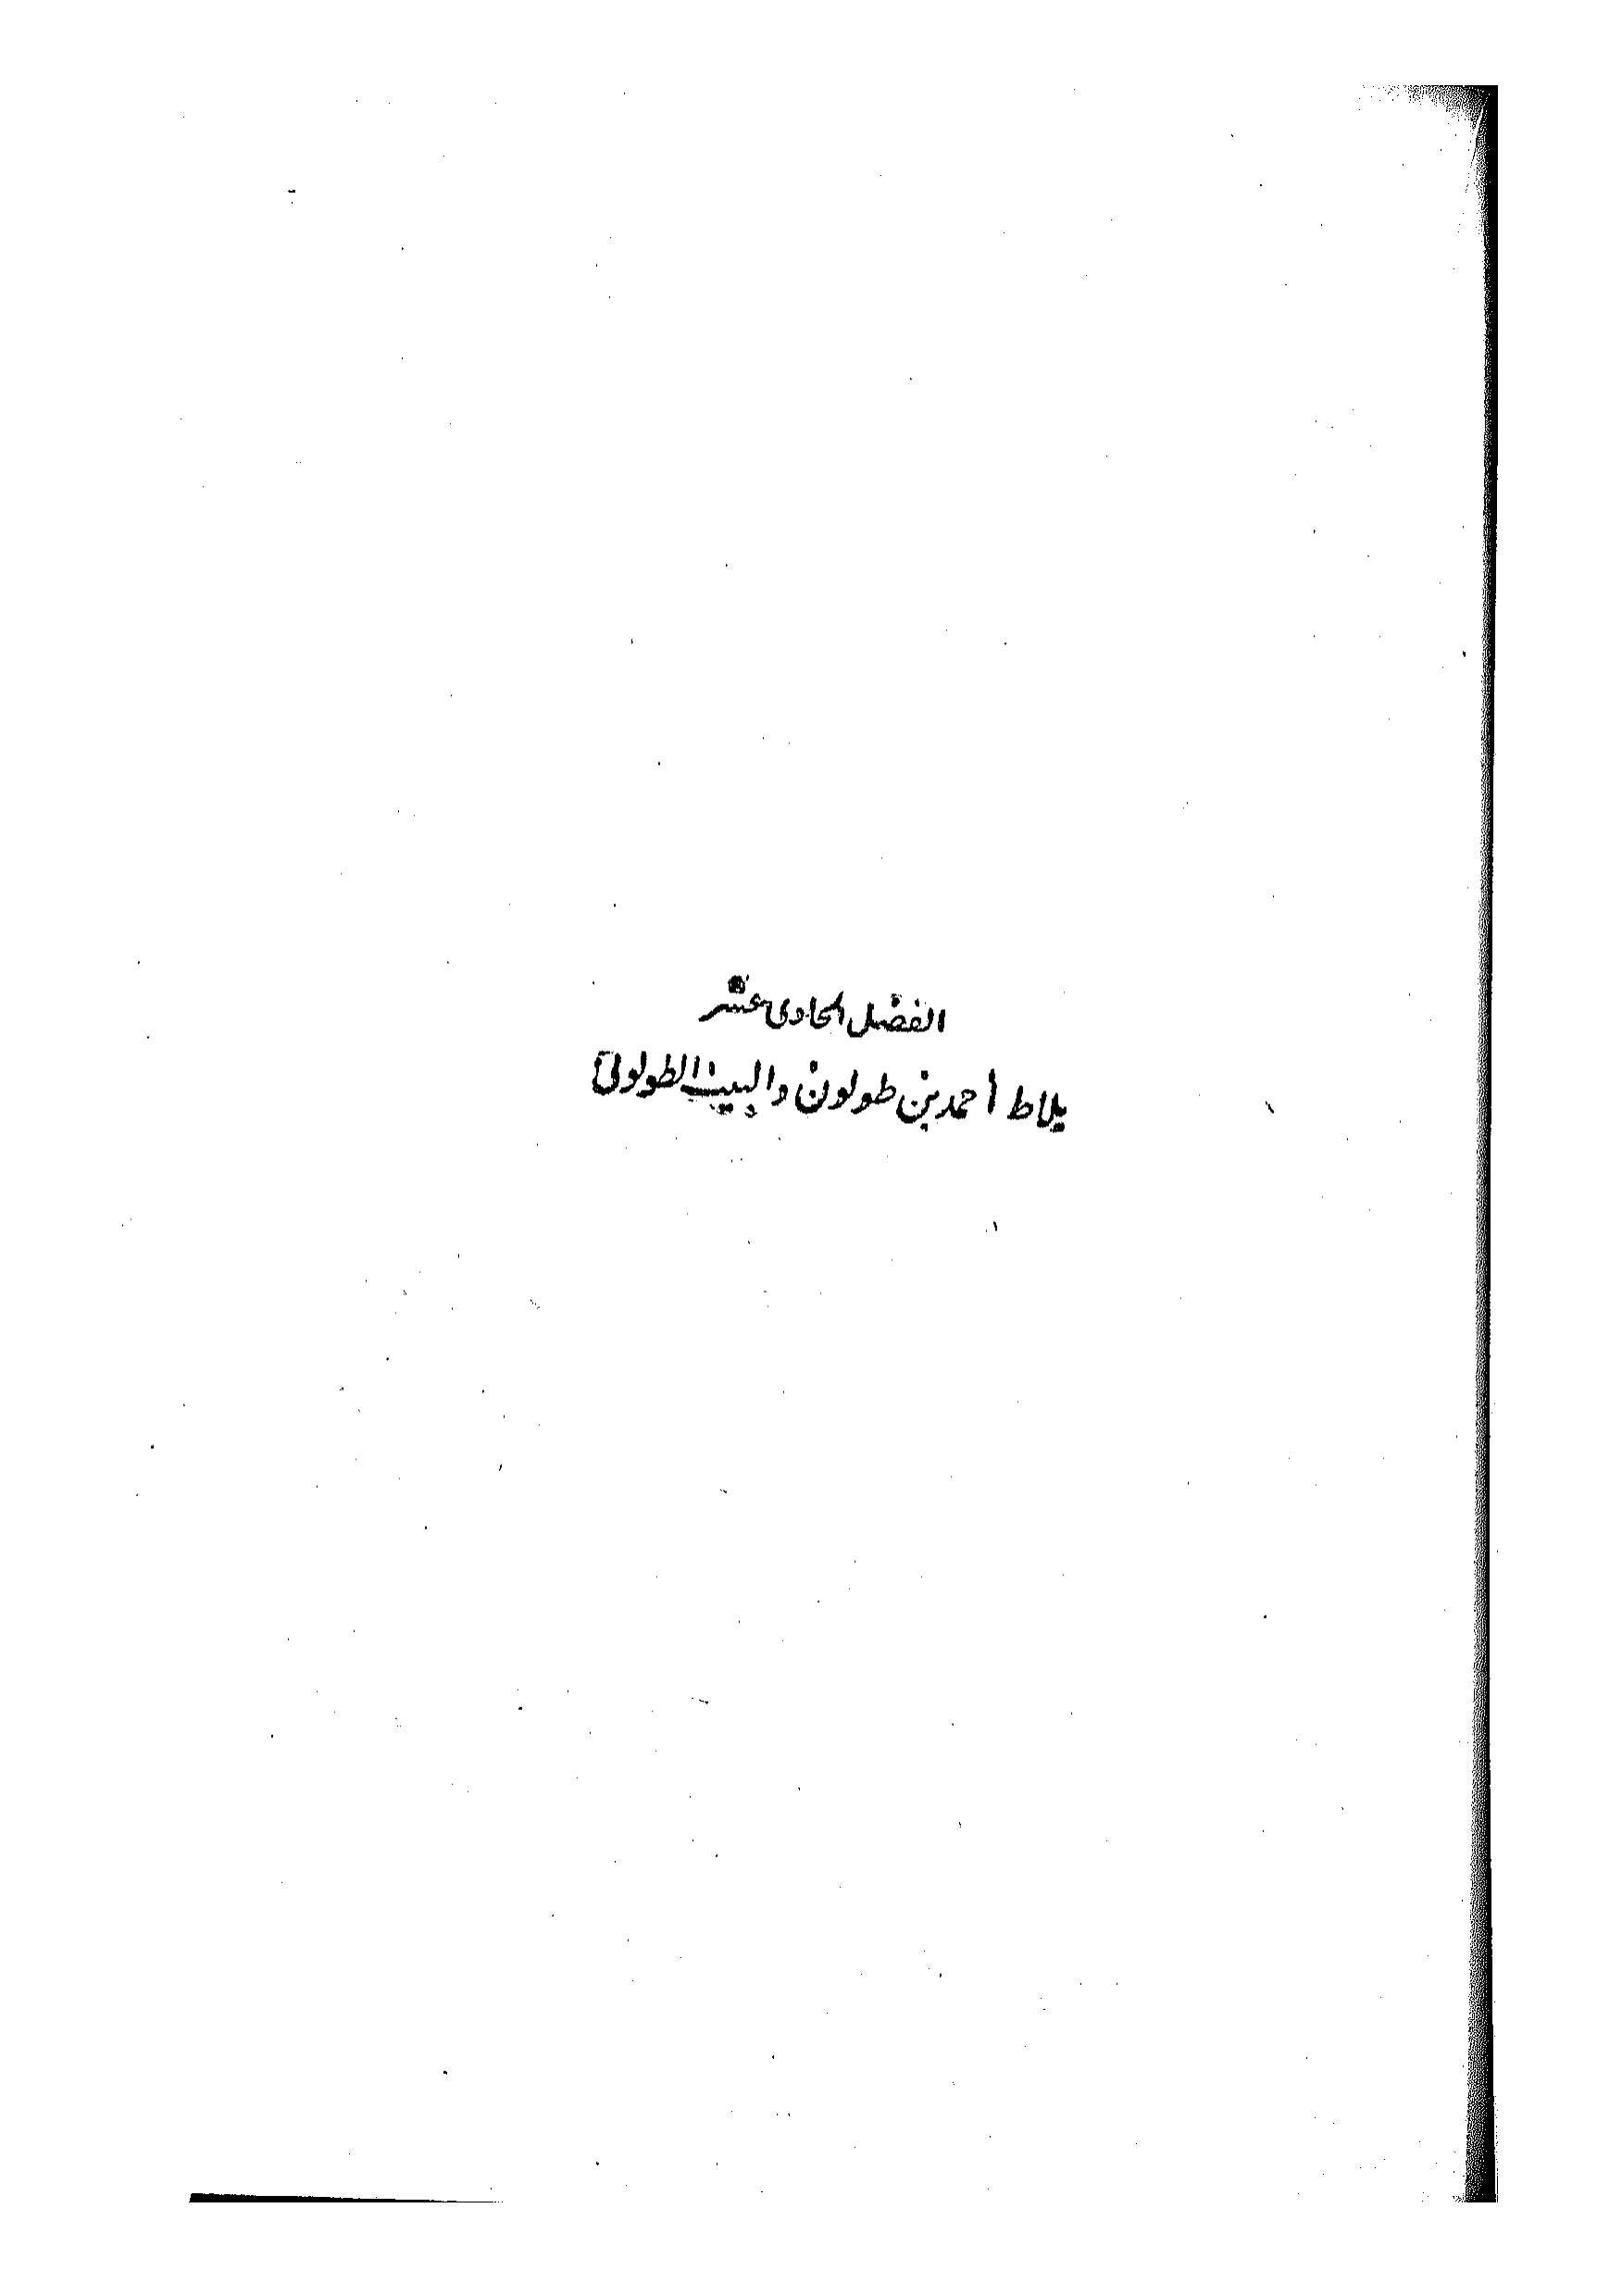 الفصل الحادى عشر
بلاط أحمد بن طولون والبيت الطولونى